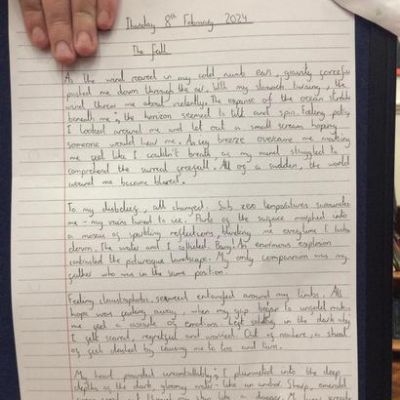 Thursday 8th February 2024
The Fall
As the wind roared in my cold numb ears, gravity
pulled me down through the air. With my stomach turning, the
wind threw me about violently. The expanse of the ocean
beneath me, the horizon seemed to tilt and spin. Feeling
I looked around me and let out a small scream hoping
someone would hear me. breeze overcame me making
me feel like I couldn't breath, as my mind struggled to
comprehend the surreal freefall. All of a sudden, the world
around me became blurred.
To my disbelief, all changed. Sub zero temperatures surrounded
me - my veins turned to ice. Parts of the surface morphed into
a mosaic of sparkling reflections, blinding me everytime I looked
down. The water and I collided. Bang! An enormous explosion
contrasted the picturesque landscape. My only companion was my
father who was in the same position.
Feeling claustrophobic, seaweed entangled around my limbs. All
hope was fading away, when my grip began to
me feel a of emotions. Left in the dark
I felt scared, regretful and worried. Out of nowhere, a shoal
of fish darted by causing me to and turn.
My head pounded uncontrollably, I plummeted into the deep
depths of the dark, gloomy water like an anchor. Sharp,